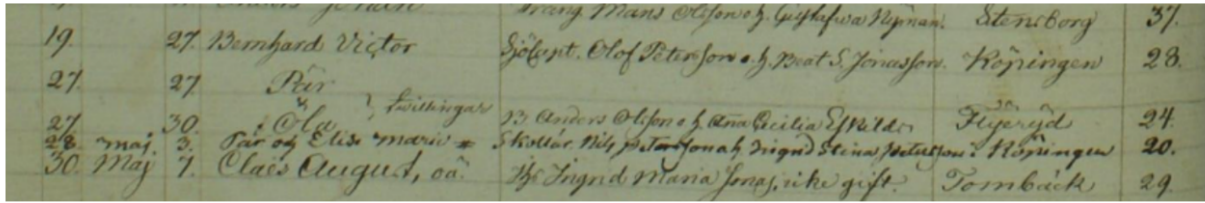 Mans Olsson o. h. Gustafwa Nyman. Stensborg 37.
19. 27. Bernhard Victor Sjöcapt. Olof Peterson o. h. Beat S. Jonasson. Köpingen 28.
27. 27. Pär
tvillingar
27 30. Ola B Anders Olsson o h. Ana Cecilia Eskilds Flyeryd 24.
28. maj. 3. Pär och Elise marie Skollär. Nils peterson o h. Ingrid Stina i Köpingen 20.
30. Maj 7. Claës August, oä. Ingrid Maria Jonas, icke gift. Tombäck 29.